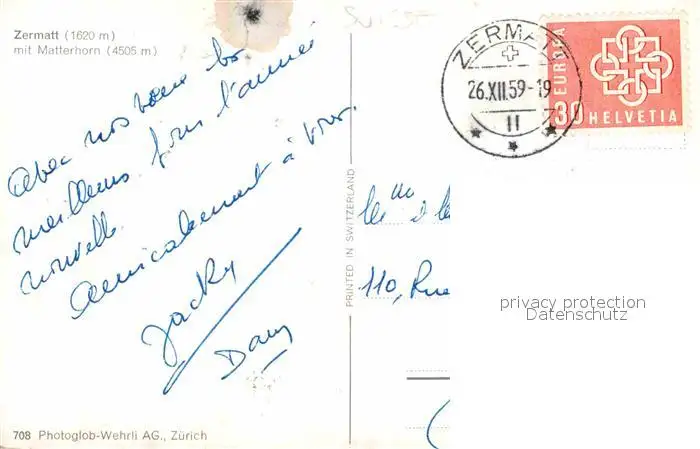 Zermatt (1620 m)
mit Matterhorn (4505 m)
SUISSE
Avec nos vœux les
meilleurs pour l'année
nouvelle.
Amicalement à vous.
Jacky
Dany
708 Photoglob-Wehrli AG., Zürich
PRINTED IN SWITZERLAND
ZERMATT
26.XII.59-19
11
EUROPA
30 HELVETIA
110, Rue
privacy protection
Datenschutz